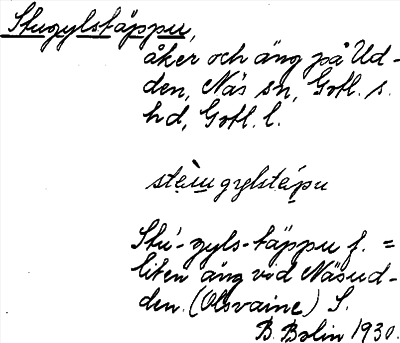 Stugylstäppu,
åker och äng på Ud-
den, Näs sn, Gotl. s.
hd, Gotl. l.
stèu gylstépu
Stú-gyls-täppu f. =
liten äng vid Näsud-
den. (Olsvaine) S.
B. Bolin 1930.